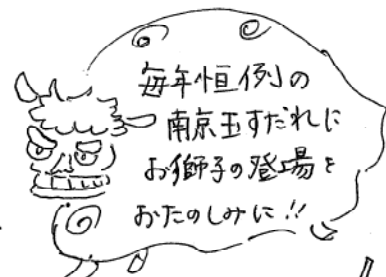 毎年恒例の
南京玉すだれに
お獅子の登場を
おたのしみに!!